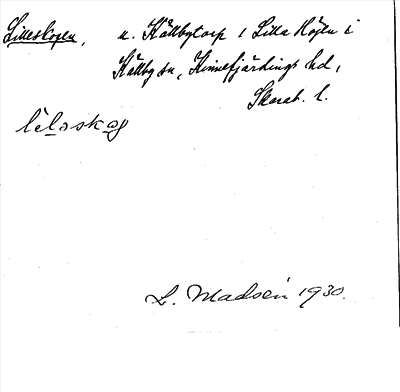 Lilleskogen, u. Källbytorp 1 Lilla Höjen i
Källby sn, Kinnefjärdings hd,
Skarab. l.
lilaskog
L. Madsén 1930.